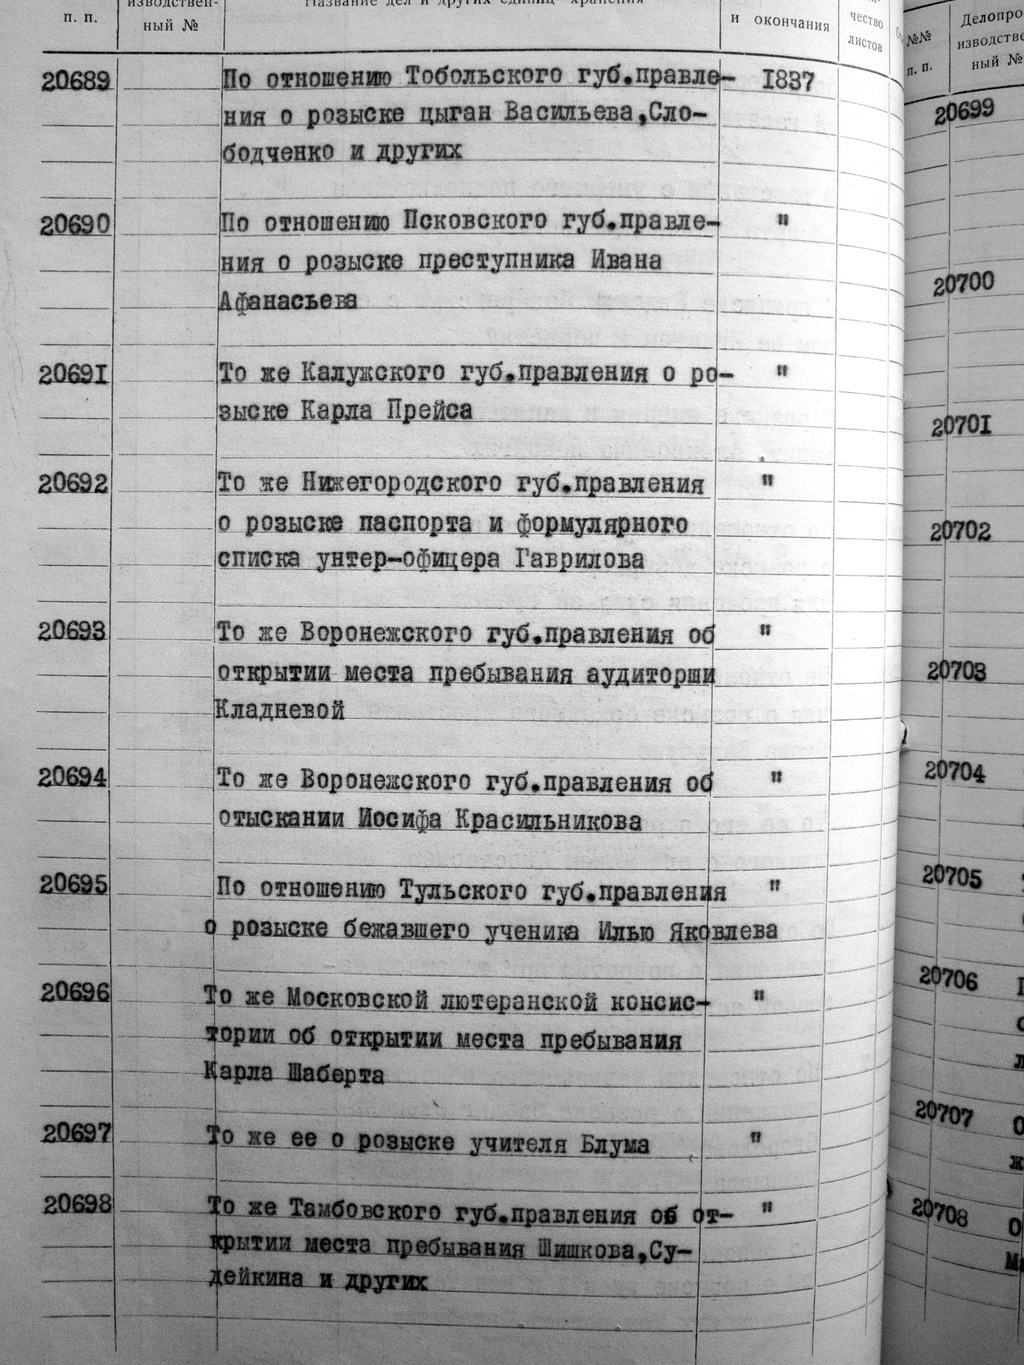 п. п.
изводствен-
ный №
Название дел и других единиц хранения
и окончания
чество
листов
20689 По отношению Тобольского губ.правле- 1837
ния о розыске цыган Васильева,Сло-
бодченко и других
20690 По отношению Псковского губ.правле- "
ния о розыске преступника Ивана
Афанасьева
20691 То же Калужского губ.правления о ро- "
зыске Карла Прейса
20692 То же Нижегородского губ.правления "
о розыске паспорта и формулярного
списка унтер-офицера Гаврилова
20693 То же Воронежского губ.правления об "
открытии места пребывания аудиторши
Кладневой
20694 То же Воронежского губ.правления об "
отыскании Иосифа Красильникова
20695 По отношению Тульского губ.правления "
о розыске бежавшего ученика Илью Яковлева
20696 То же Московской лютеранской консис- "
тории об открытии места пребывания
Карла Шаберта
20697 То же ее о розыске учителя Блума "
20698 То же Тамбовского губ.правления об от- "
крытии места пребывания Шишкова,Су-
дейкина и других
№№
п. п.
Делопро
изводстве
ный №
20699
20700
20701
20702
20703
20704
20705
20706
20707
20708